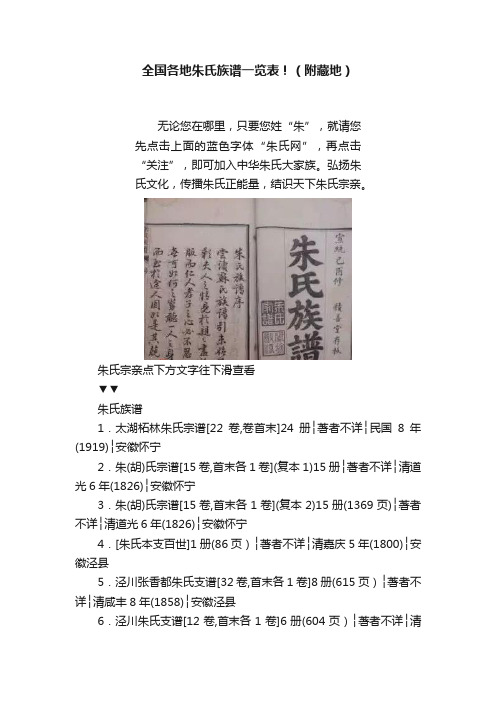 全国各地朱氏族谱一览表！（附藏地）
无论您在哪里，只要您姓“朱”，就请您
先点击上面的蓝色字体“朱氏网”，再点击
“关注”，即可加入中华朱氏大家族。弘扬朱
氏文化，传播朱氏正能量，结识天下朱氏宗亲。
宣统己酉修 積善堂存板
朱氏族譜
朱氏族譜序
嘗讀蘇氏族譜引未
朱氏宗亲点下方文字往下滑查看
▼▼
朱氏族谱
1．太湖柘林朱氏宗谱[22 卷,卷首末]24 册┆著者不详┆民国 8 年
(1919)┆安徽怀宁
2．朱(胡)氏宗谱[15 卷,首末各 1 卷](复本 1)15 册┆著者不详┆清道
光 6 年(1826)┆安徽怀宁
3．朱(胡)氏宗谱[15 卷,首末各 1 卷](复本 2)15 册(1369 页)┆著者
不详┆清道光 6 年(1826)┆安徽怀宁
4．[朱氏本支百世]1 册(86 页）┆著者不详┆清嘉庆 5 年(1800)┆安
徽泾县
5．泾川张香都朱氏支谱[32 卷,首末各 1 卷]8 册(615 页）┆著者不
详┆清咸丰 8 年(1858)┆安徽泾县
6．泾川朱氏支谱[12 卷,首末各 1 卷]6 册(604 页）┆著者不详┆清